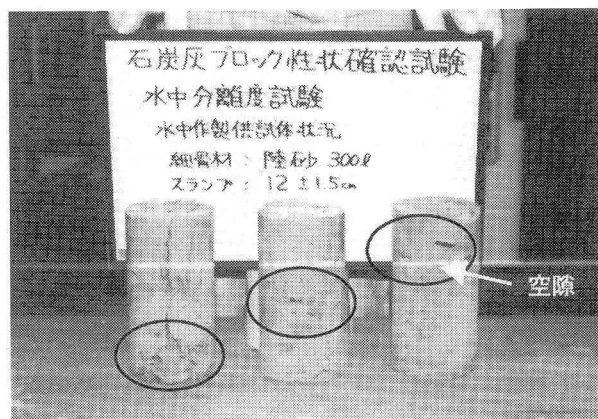 石炭灰ブロック性状確認試験
水中分離度試験
水中作製供試体状況
細骨材：陸砂 300ℓ
スランプ：12±1.5cm
空隙